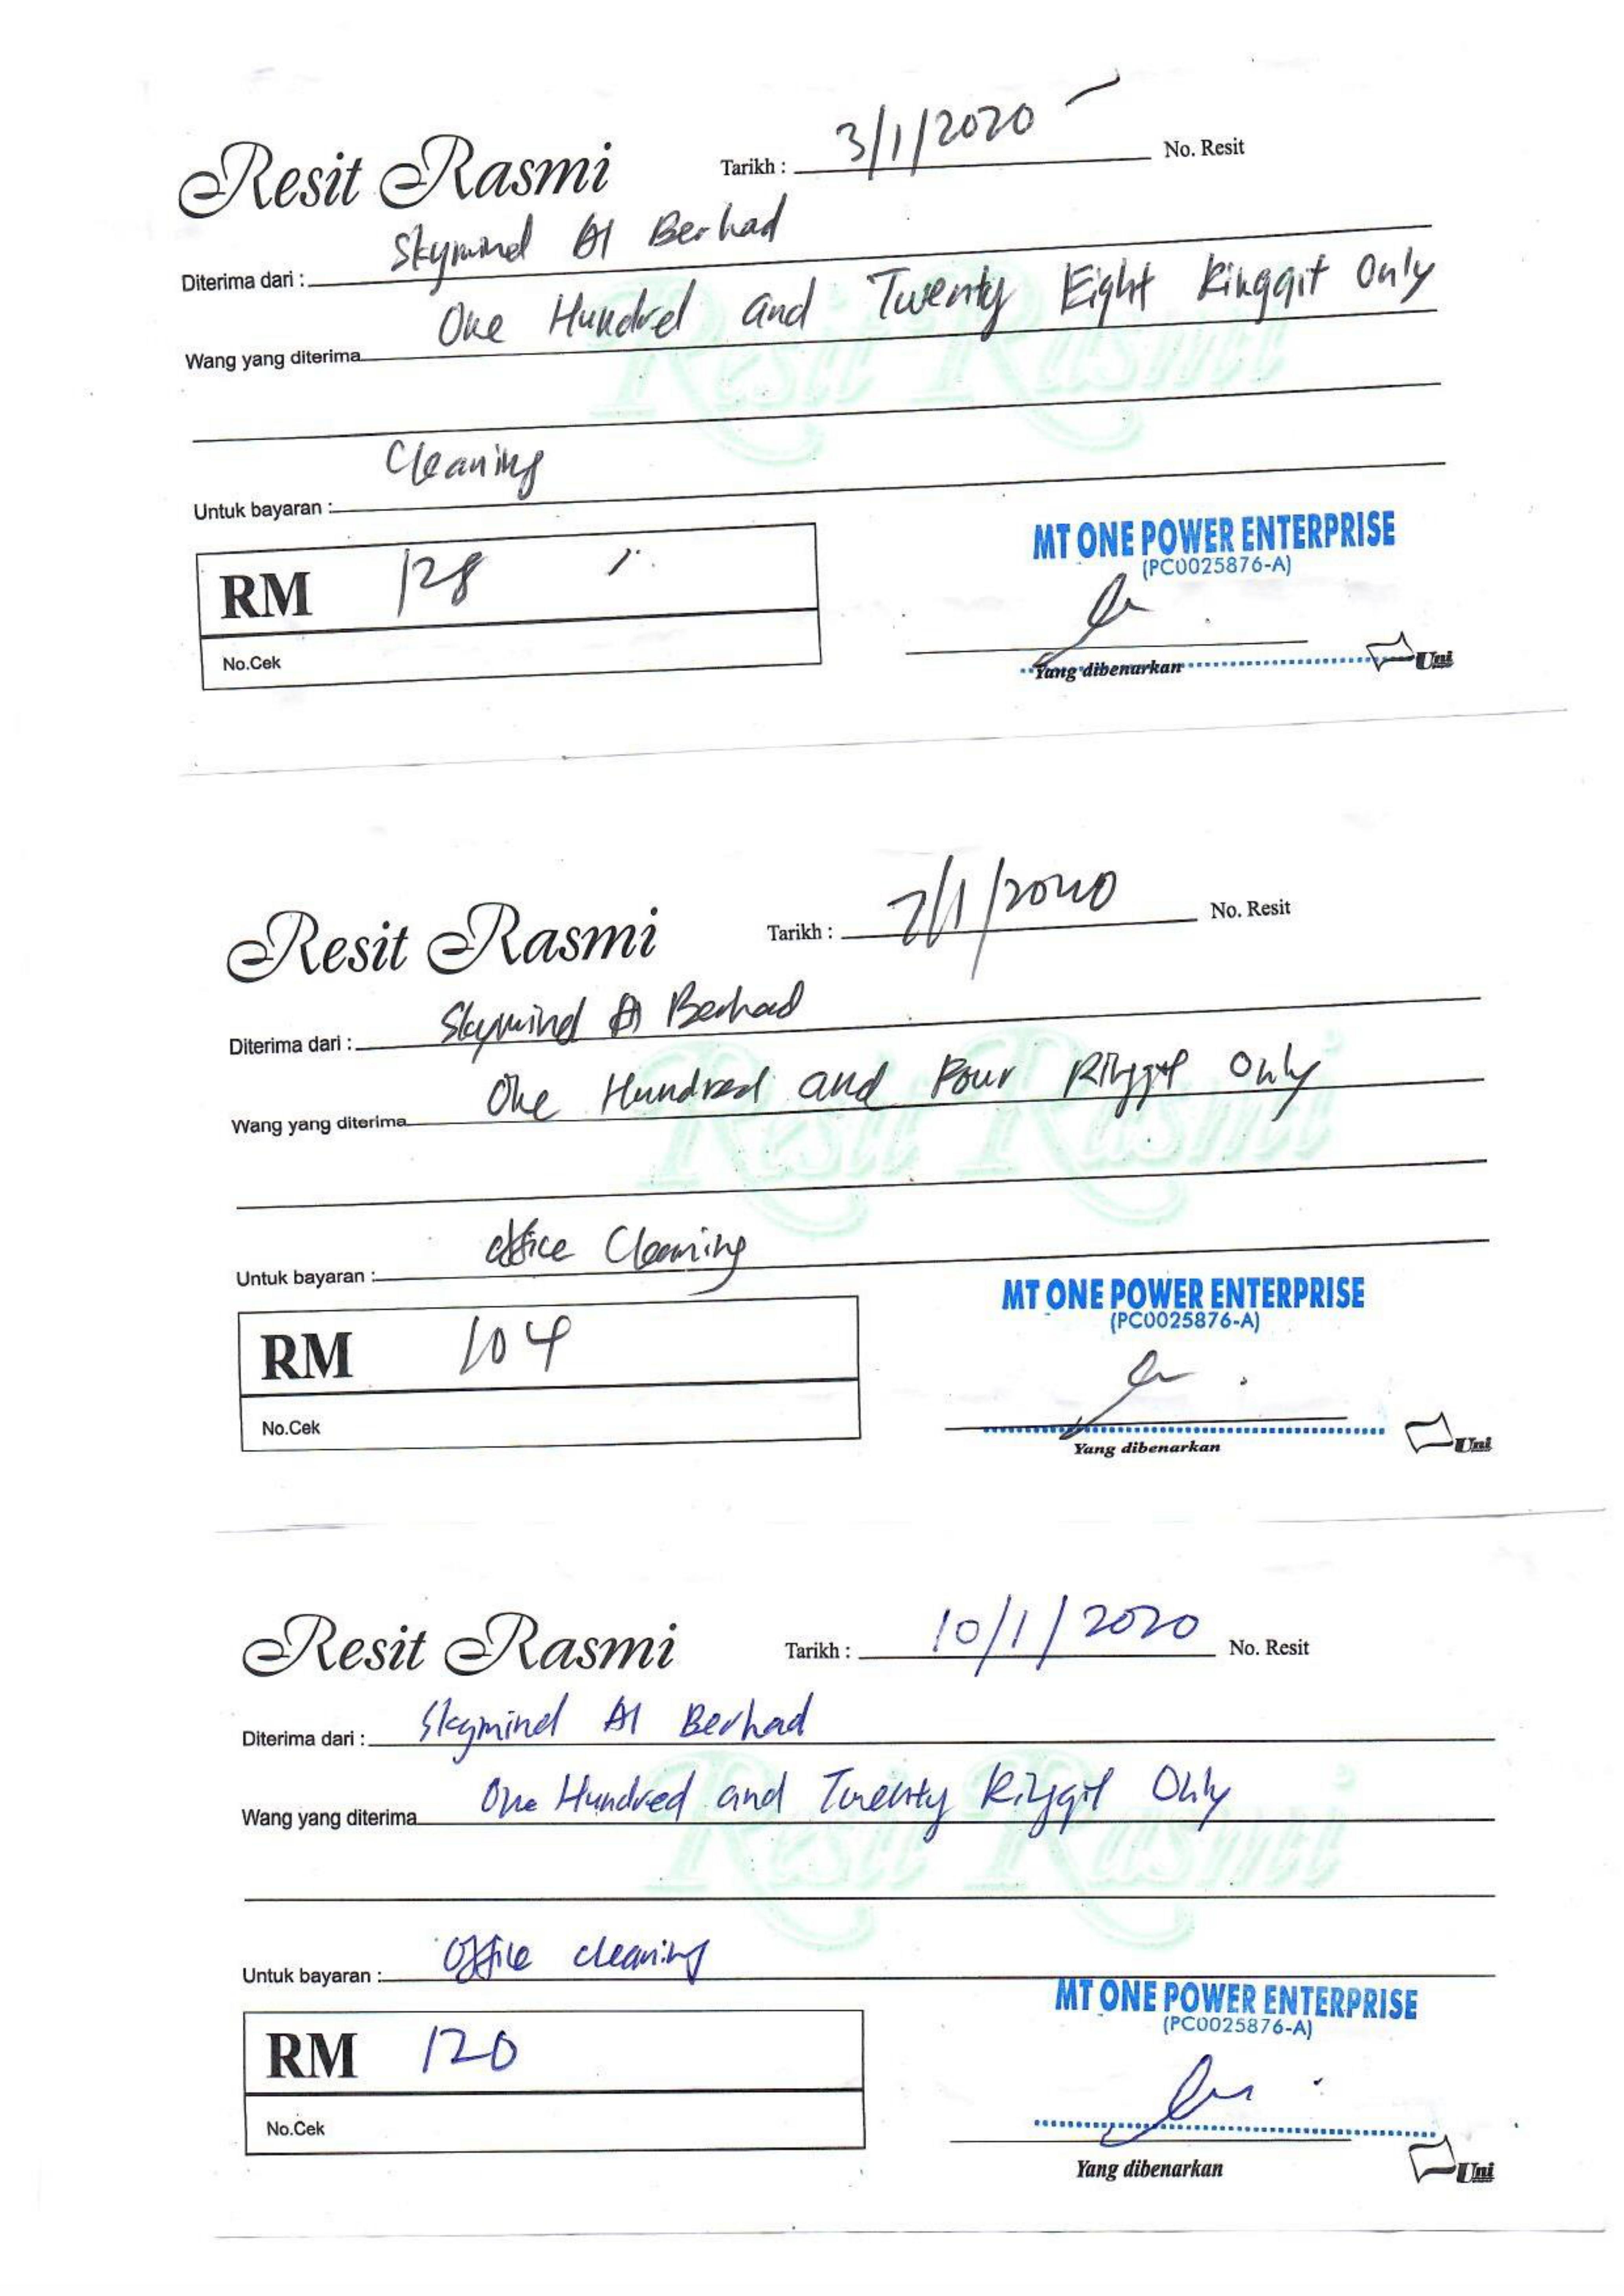 Resit Rasmi
Tarikh : 3/1/2020
No. Resit
Diterima dari : Skymind AI Berhad
Wang yang diterima One Hundred and Twenty Eight Ringgit Only
Resit Rasmi
Untuk bayaran : Cleaning
MT ONE POWER ENTERPRISE
(PC0025876-A)
RM 128
No.Cek
Yang dibenarkan
Uni
Resit Rasmi
Tarikh : 7/1/2020
No. Resit
Diterima dari : Skymind AI Berhad
Wang yang diterima One Hundred and Four Ringgit Only
Resit Rasmi
Untuk bayaran : office Cleaning
MT ONE POWER ENTERPRISE
(PC0025876-A)
RM 104
No.Cek
Yang dibenarkan
Uni
Resit Rasmi
Tarikh : 10/1/2020
No. Resit
Diterima dari : Skymind AI Berhad
Wang yang diterima One Hundred and Twenty Ringgit Only
Resit Rasmi
Untuk bayaran : Office cleaning
MT ONE POWER ENTERPRISE
(PC0025876-A)
RM 120
No.Cek
Yang dibenarkan
Uni